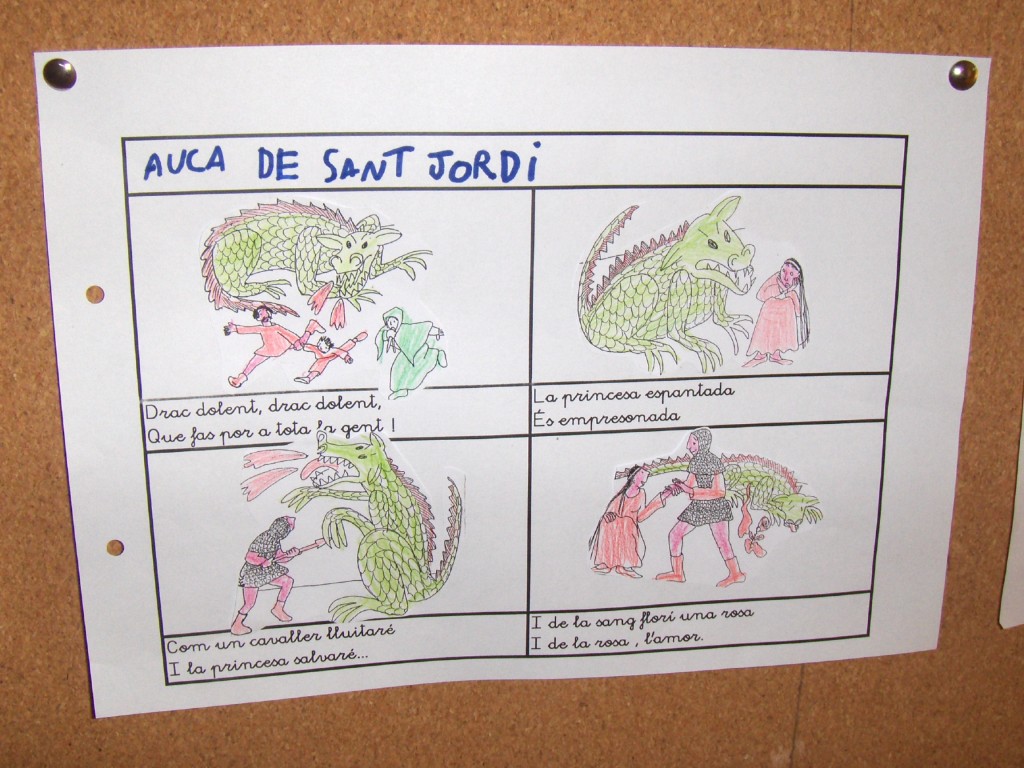 AUCA DE SANT JORDI
Drac dolent, drac dolent,
Que fas por a tota la gent !
La princesa espantada
És empresonada
Com un cavaller lluitaré
I la princesa salvaré...
I de la sang florí una rosa
I de la rosa , l'amor.